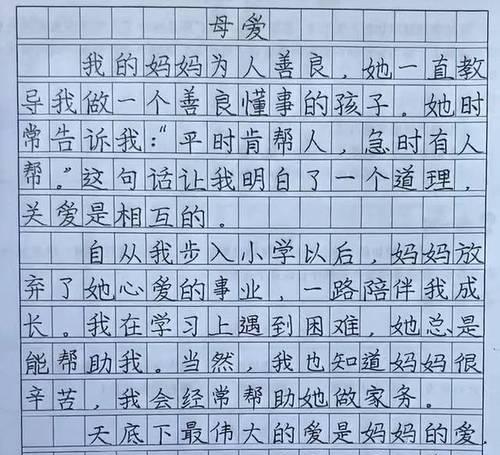 母爱
我的妈妈为人善良，她一直教
导我做一个善良懂事的孩子。她时
常告诉我：“平时肯帮人，急时有人
帮。”这句话让我明白了一个道理，
关爱是相互的。
自从我步入小学以后，妈妈放
弃了她心爱的事业，一路陪伴我成
长。我在学习上遇到困难，她总是
能帮助我。当然，我也知道妈妈很
辛苦，我会经常帮助她做家务。
天底下最伟大的爱是妈妈的爱.